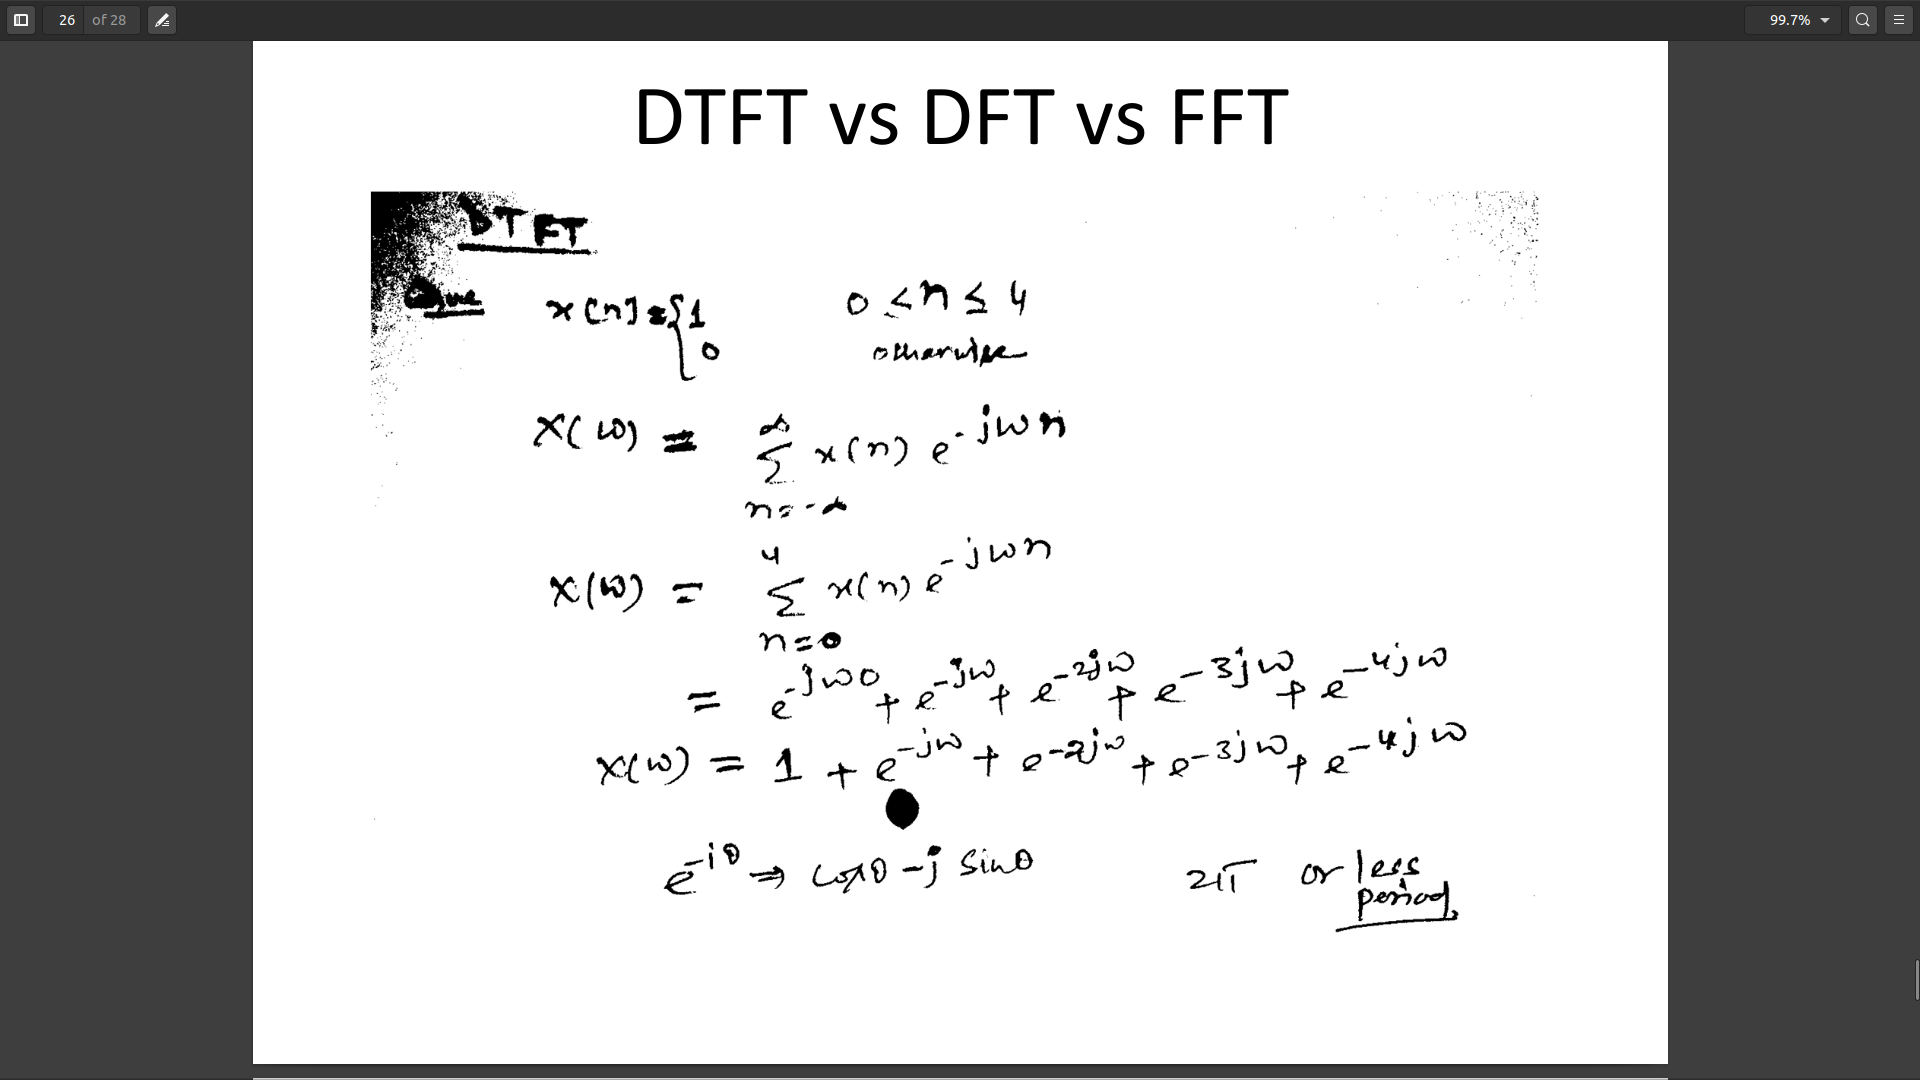 26 of 28
99.7%
DTFT vs DFT vs FFT
DTFT
x[n] = { 1 0 ≤ n ≤ 4
0 otherwise
X(ω) = ∞ Σ n=-∞ x(n) e^-jωn
X(ω) = 4 Σ n=0 x(n) e^-jωn
= e^-jω0 + e^-jω + e^-2jω + e^-3jω + e^-4jω
X(ω) = 1 + e^-jω + e^-2jω + e^-3jω + e^-4jω
e^-iθ ⇒ cosθ - j sinθ 2π or less
period